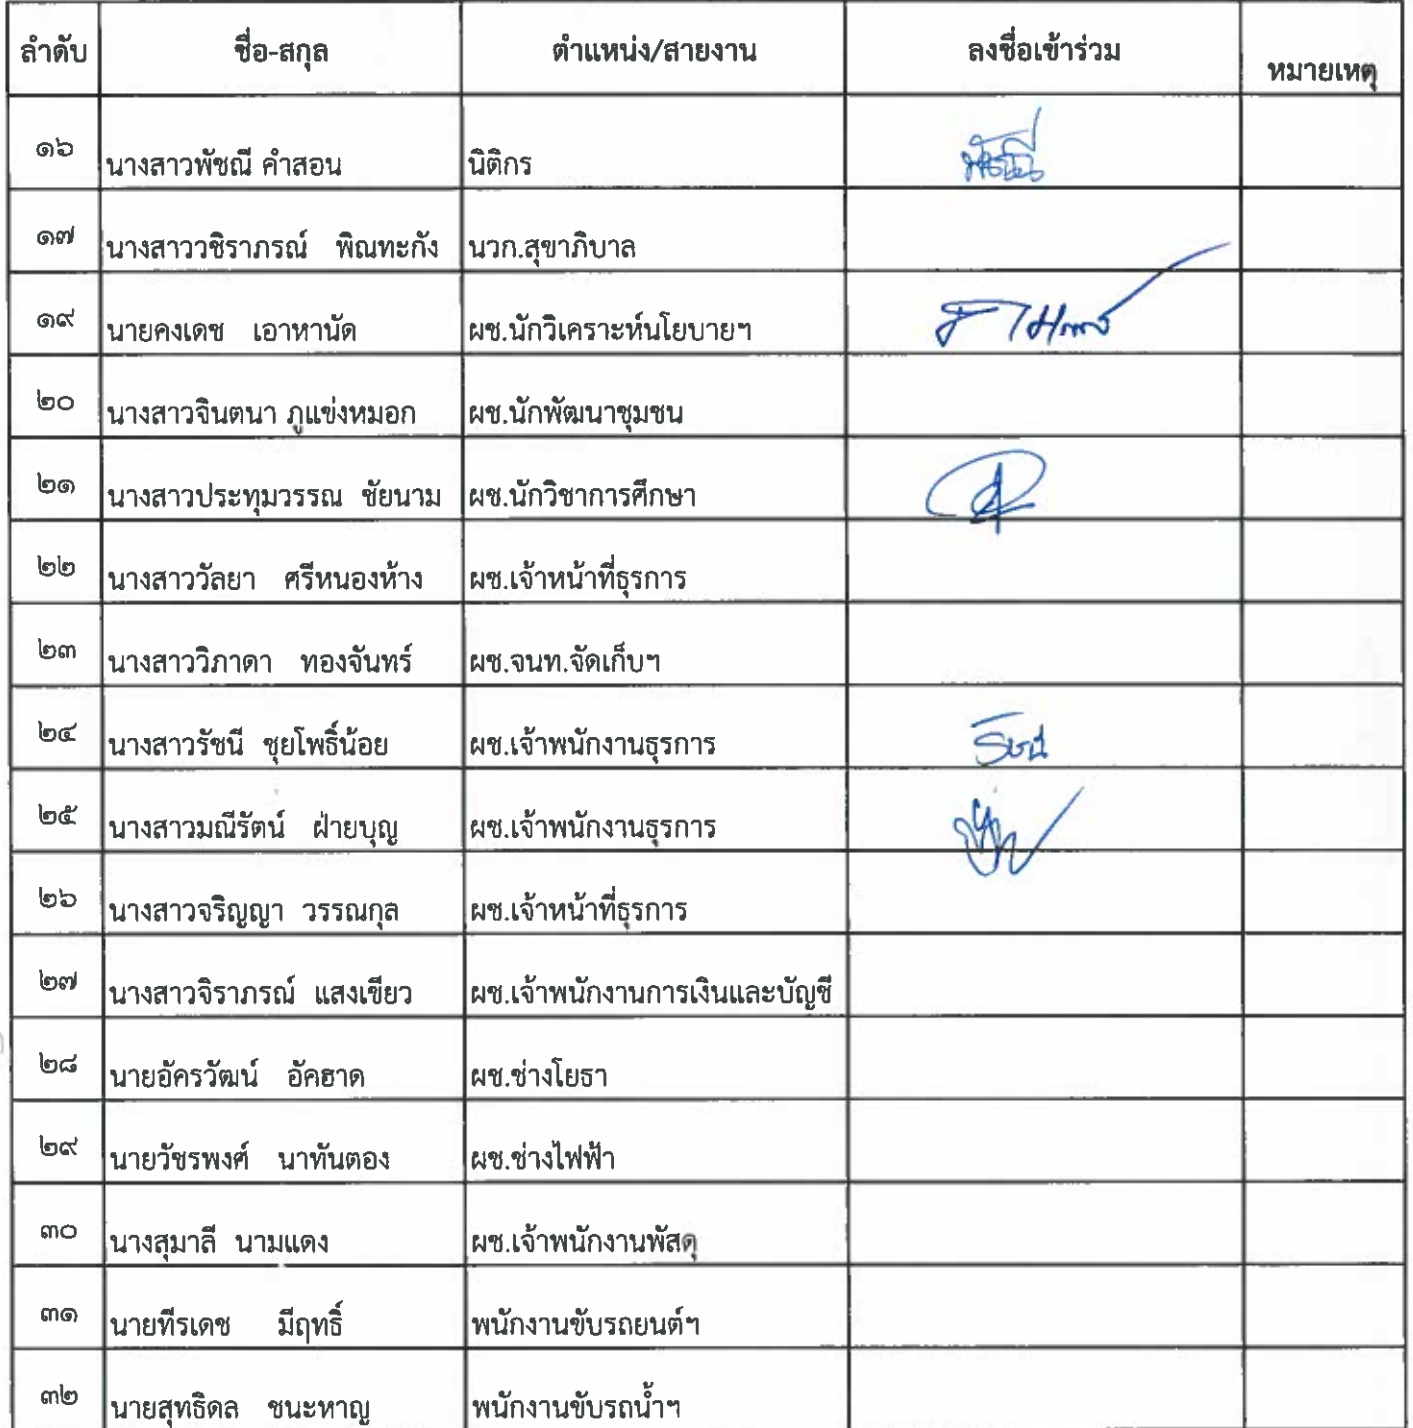 ลำดับ ชื่อ-สกุล ตำแหน่ง/สายงาน ลงชื่อเข้าร่วม หมายเหตุ
๑๖ นางสาวพัชณี คำสอน นิติกร พัชณี
๑๗ นางสาววชิราภรณ์ พิณทะกัง นวก.สุขาภิบาล
๑๙ นายคงเดช เอาหานัด ผช.นักวิเคราะห์นโยบายฯ
๒๐ นางสาวจินตนา ภูแข่งหมอก ผช.นักพัฒนาชุมชน
๒๑ นางสาวประทุมวรรณ ชัยนาม ผช.นักวิชาการศึกษา
๒๒ นางสาววัลยา ศรีหนองห้าง ผช.เจ้าหน้าที่ธุรการ
๒๓ นางสาววิภาดา ทองจันทร์ ผช.จนท.จัดเก็บฯ
๒๔ นางสาวรัชนี ชุยโพธิ์น้อย ผช.เจ้าพนักงานธุรการ รัชนี
๒๕ นางสาวมณีรัตน์ ฝ่ายบุญ ผช.เจ้าพนักงานธุรการ
๒๖ นางสาวจริญญา วรรณกุล ผช.เจ้าหน้าที่ธุรการ
๒๗ นางสาวจิราภรณ์ แสงเขียว ผช.เจ้าพนักงานการเงินและบัญชี
๒๘ นายอัครวัฒน์ อัคฮาด ผช.ช่างโยธา
๒๙ นายวัชรพงศ์ นาทันตอง ผช.ช่างไฟฟ้า
๓๐ นางสุมาลี นามแดง ผช.เจ้าพนักงานพัสดุ
๓๑ นายทีรเดช มีฤทธิ์ พนักงานขับรถยนต์ฯ
๓๒ นายสุทธิดล ชนะหาญ พนักงานขับรถน้ำฯ